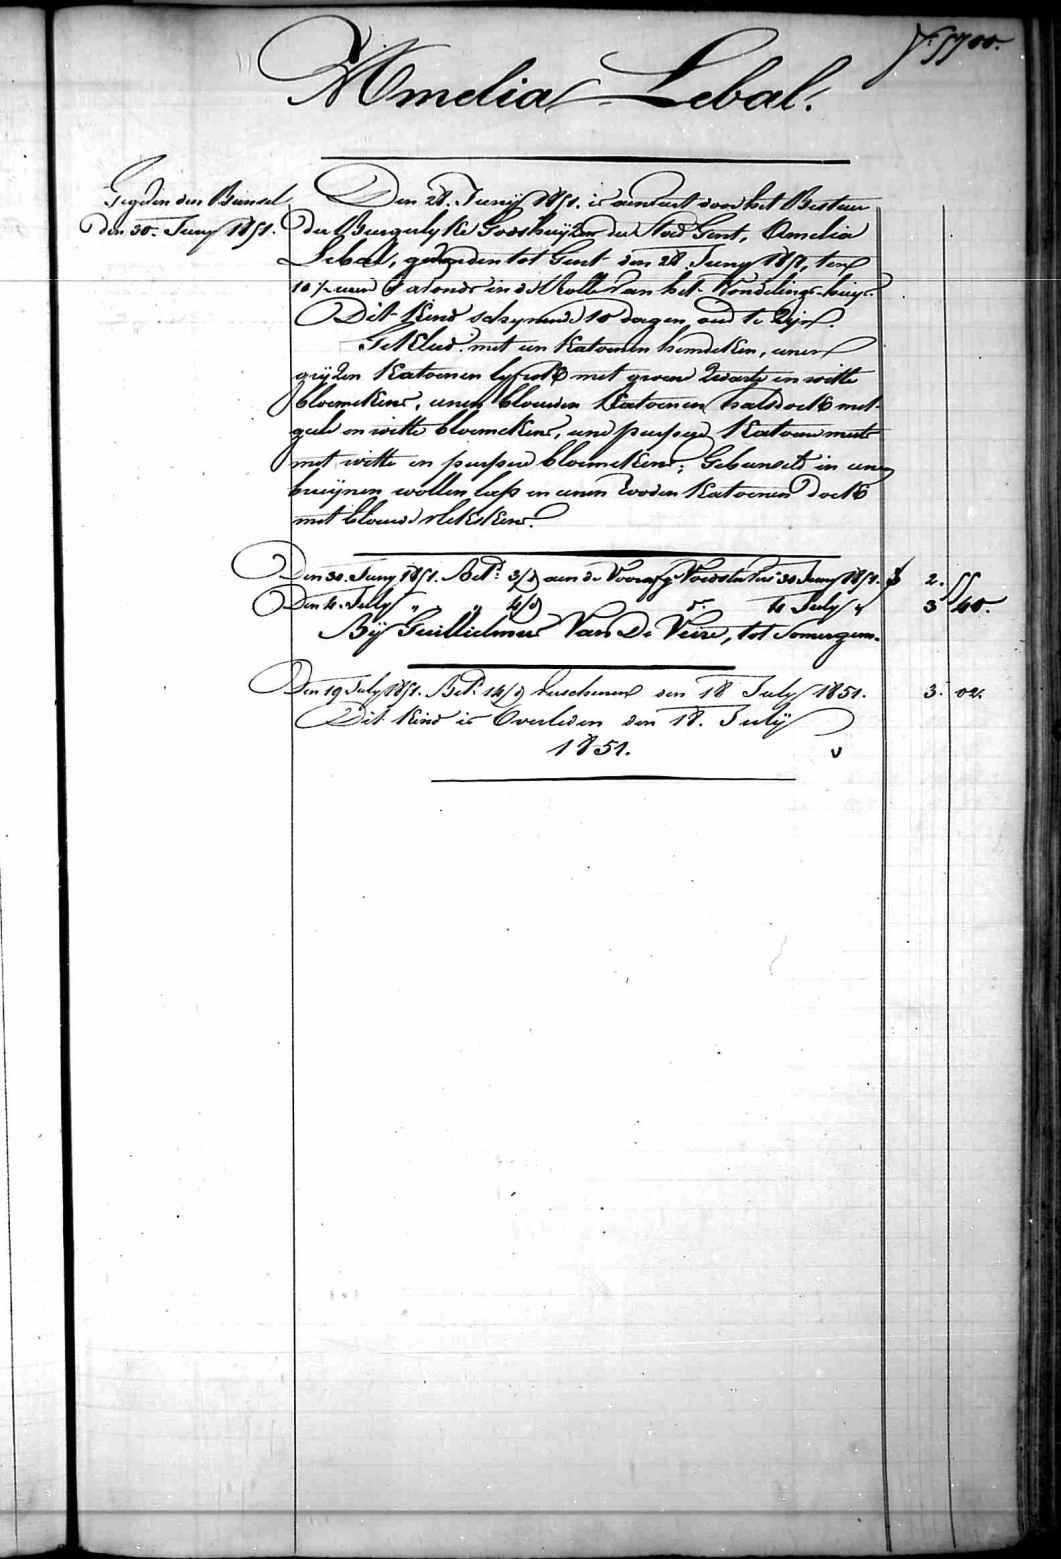 f. 5700.
Amelia Lebal.
Gegeven den Bunsel
den 30. Juny 1851.
Den 28. Junij 1851. is aenveert door het Bestuer
der Burgerlyke Godshuyzen der Stad Gent, Amelia
Lebal, gevonden tot Gent den 28 Juny 1851, ten
10 ½ uren 's avonds in de Rolle van het Vondelings-huys.
Dit Kind schynende 10 dagen oud te zijn.
Gekleed: met een Katoenen hemdeken, eenen
grijzen Katoenen lyfrok met groene zwarte en witte
bloemekens, eenen blauwen Katoenen halsdoek met
geele en witte bloemekens, eene purpere Katoene muts
met witte en purpere bloemekens; Gebunseld in eenen
bruijnen wollen lap en eenen rooden Katoenen doek
met blauwe vlekskens.
Den 30. Juny 1851. Bet. 3/d aen de Voorafg. Voedster tot 30 Juny 1851. f 2. 55
Den 4. July " " 4/d d°. 4 July " 3 40.
Bij Guillielmus Van De Veire, tot Somergem.
Den 19 July 1851. Bet. 14/d verschenen den 18 July 1851. 3. 02.
Dit Kind is Overleden den 18. Julij
1851.